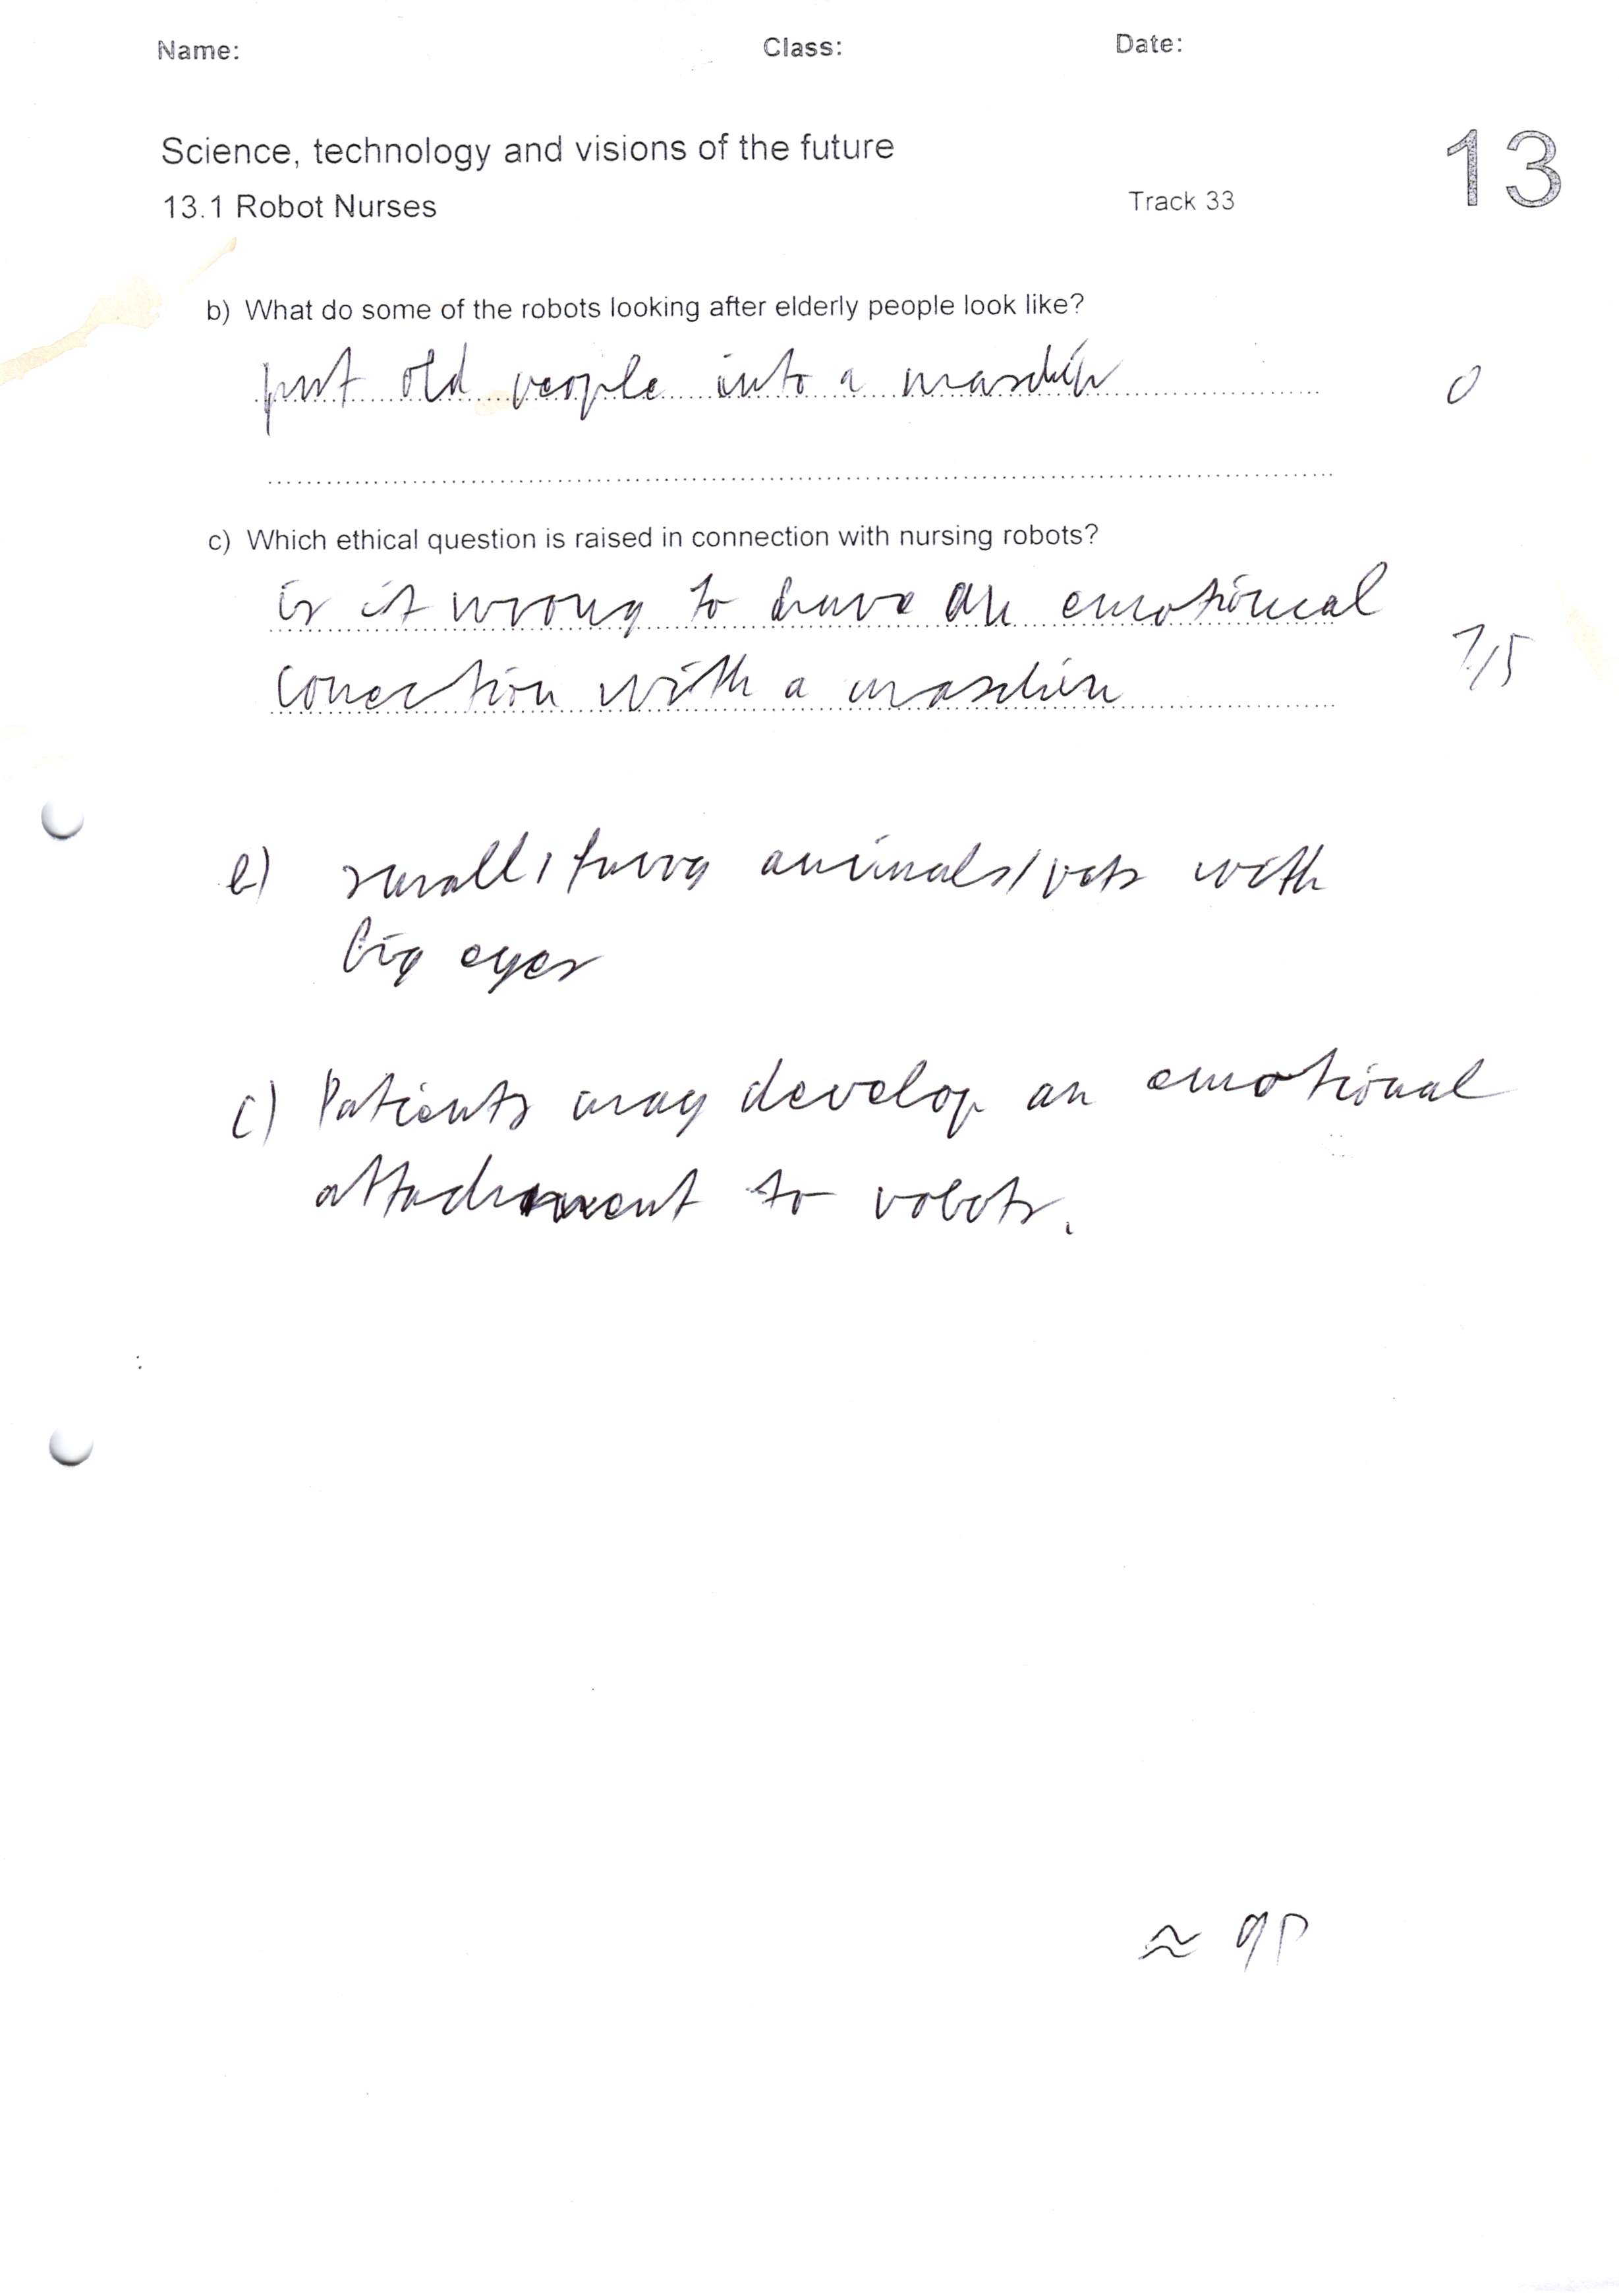 Name: Class: Date:
Science, technology and visions of the future
13
13.1 Robot Nurses Track 33
b) What do some of the robots looking after elderly people look like?
put old people into a maschin
0
c) Which ethical question is raised in connection with nursing robots?
is it wrong to have an emotional
conection with a maschin
1/5
b) small, furry animals/pets with
big eyes
c) Patients may develop an emotional
attachment to robots.
≈ 9P